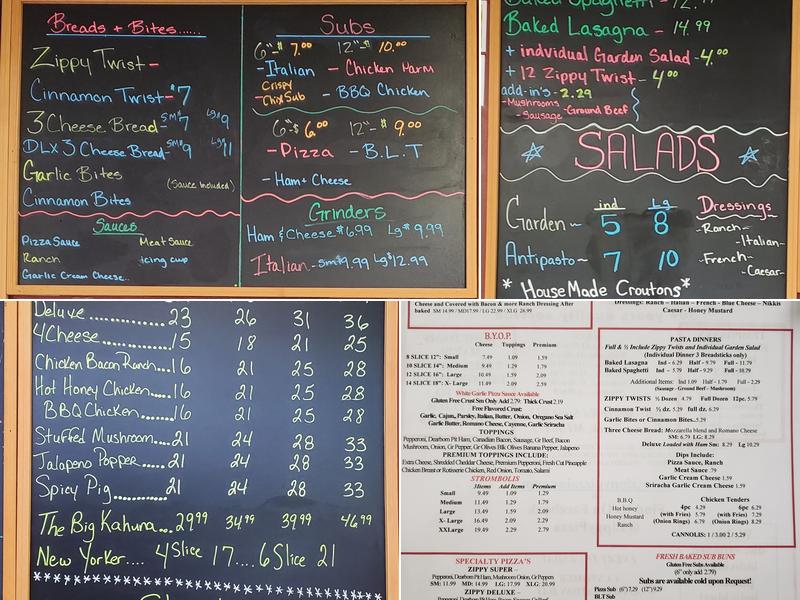 Breads + Bites......
Zippy Twist -
Cinnamon Twist - $7
3 Cheese Bread - SM $7 Lg $9
DLX 3 Cheese Bread - SM $9 Lg $11
Garlic Bites
(Sauce Included)
Cinnamon Bites
Sauces
Pizza Sauce Meat Sauce
Ranch icing cup
Garlic Cream Cheese..
Subs
6" - $7.00 12" - $10.00
- Italian - Chicken Parm
- Crispy Chix Sub - BBQ Chicken
6" - $6.00 12" - $9.00
- Pizza - B.L.T
- Ham + Cheese
Grinders
Ham & Cheese $6.99 Lg $9.99
Italian - Sm $9.99 Lg $12.99
Baked Spaghetti - 12.
Baked Lasagna - 14.99
+ indivdual Garden Salad - 4.00
+ 12 Zippy Twist - 4.00
add-in's - 2.29
- Mushrooms
- Sausage - Ground Beef
SALADS
ind Lg
Garden ~ 5 8
Antipasto ~ 7 10
Dressings
- Ranch -
- Italian -
- French -
- Caesar -
* House Made Croutons *
Deluxe ......... 23 26 31 36
4 Cheese ......... 15 18 21 25
Chicken Bacon Ranch... 16 21 25 28
Hot Honey Chicken.... 16 21 25 28
BBQ Chicken...... 16 21 25 28
Stuffed Mushroom.... 21 24 28 33
Jalapeno Popper.... 21 24 28 33
Spicy Pig...... 21 24 28 33
The Big Kahuna... 29.99 34.99 39.99 46.99
New Yorker.... 4 Slice 17.... 6 Slice 21
Cheese and Covered with Bacon & more Ranch Dressing After
baked SM 14.99 / MD17.99 / LG 22.99 / XLG 26.99
B.Y.O.P.
Cheese Toppings Premium
8 SLICE 12": Small 7.49 1.09 1.59
10 SLICE 14": Medium 9.49 1.29 1.79
12 SLICE 16": Large 10.49 1.59 2.09
14 SLICE 18": X- Large 11.49 2.09 2.59
White Garlic Pizza Sauce Available
Gluten Free Crust Sm Only Add 2.79: Thick Crust 2.19
Free Flavored Crust:
Garlic, Cajun, Parsley, Italian, Butter, Onion, Oregano Sea Salt
Garlic Butter, Romano Cheese, Cayenne, Garlic Sriracha
TOPPINGS
Pepperoni, Dearborn Pit Ham, Canadian Bacon, Sausage, Gr Beef, Bacon
Mushroom, Onion, Gr Pepper, Gr Olives Blk Olives Banana Pepper, Jalapeno
PREMIUM TOPPINGS INCLUDE:
Extra Cheese, Shredded Cheddar Cheese, Premium Pepperoni, Fresh Cut Pineapple
Chicken Breast or Rotisserie Chicken, Red Onion, Tomato, Salami
STROMBOLIS
3Items Add Items Premium
Small 9.49 1.09 1.29
Medium 11.49 1.29 1.79
Large 13.49 1.59 2.09
X- Large 16.49 2.09 2.29
XXLarge 19.49 2.29 2.79
SPECIALTY PIZZA'S
ZIPPY SUPER –
Pepperoni, Dearborn Pit Ham, Mushroom Onion, Gr Peppers
SM: 11.99 MD: 14.99 LG: 17.99 XLG: 20.99
ZIPPY DELUXE -
Dressings: Ranch – Italian – French - Blue Cheese – Nikkis
Caesar - Honey Mustard
PASTA DINNERS
Full & ½ Include Zippy Twists and Individual Garden Salad
(Individual Dinner 3 Breadsticks only)
Baked Lasagna Ind - 6.29 Half - 9.79 Full – 11.79
Baked Spaghetti Ind – 5.79 Half – 8.29 Full - 10.79
Additional Items: Ind 1.09 Half - 1.79 Full - 2.29
(Sausage - Ground Beef - Mushrooms)
ZIPPY TWISTS ½ Dozen 4.79 Full Dozen 12pc, 5.79
Cinnamon Twist ½ dz. 5.29 full dz. 6.29
Garlic Bites or Cinnamon Bites..5.29
Three Cheese Bread: Mozzarella blend and Romano Cheese
SM: 6.79 LG: 8.29
Deluxe Loaded with Ham Sm: 8.29 Lg 10.29
Dips Include:
Pizza Sauce, Ranch
Meat Sauce .79
Garlic Cream Cheese 1.59
Sriracha Garlic Cream Cheese 1.59
B.B.Q
Hot honey
Honey Mustard
Ranch
Chicken Tenders
4pc 4.29 6pc 6.29
(with Fries) 5.79 (with Fries) 7.29
(Onion Rings) 6.79 (Onion Rings) 8.29
CANNOLIS: 1 / 3.00 2 / 5.29
FRESH BAKED SUB BUNS
Gluten Free Subs Available
(6" only add 2.79)
Subs are available cold upon Request!
Pizza Sub (6")7.29 (12")9.29
BLT Sub